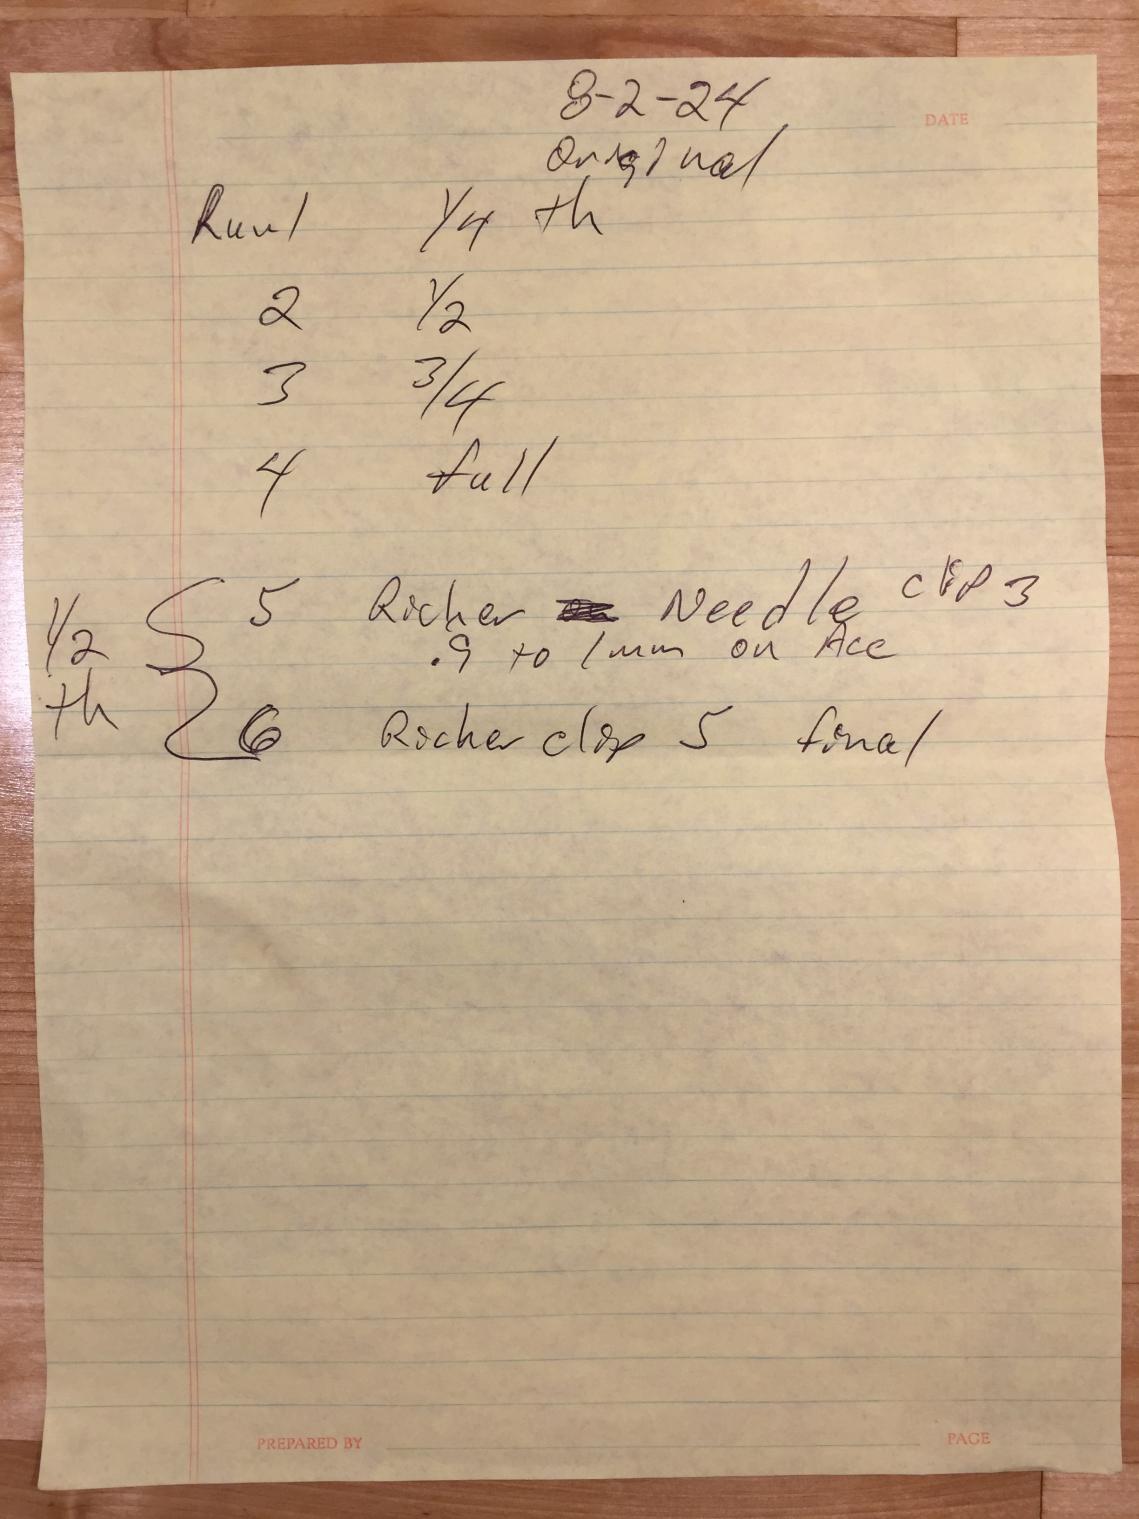 8-2-24
DATE
Original
Run 1 1/4 th
2 1/2
3 3/4
4 full
1/2 th
5 Richer Needle clip 3
.9 to 1mm on Acc
6 Richer clip 5 final
PREPARED BY
PAGE